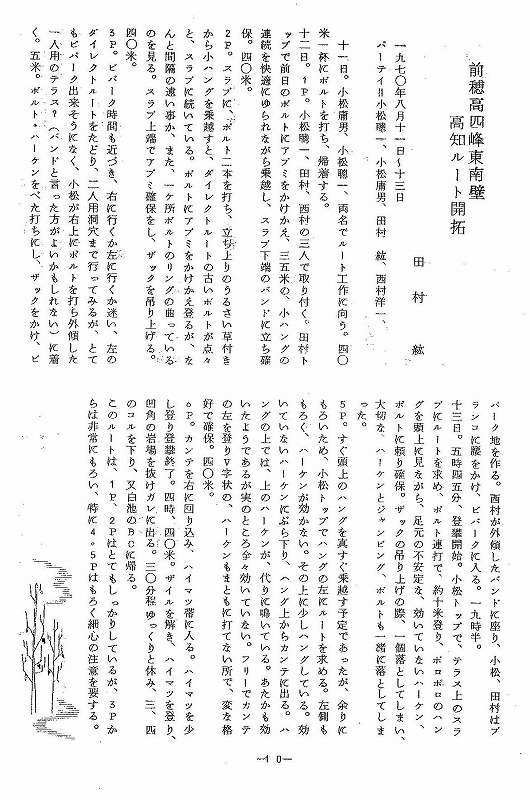 前穂高四峰東南壁
高知ルート開拓
田村 紘
一九七〇年八月十一日～十三日
パーテイ＝小松聰一、小松庸男、田村 紘、西村洋一、
十一日。小松庸男、小松聰一、両名でルート工作に向う。四〇
米一杯にボルトを打ち、帰着する。
十二日。1P。小松聰一、田村、西村の三人で取り付く。田村ト
ップで前日のボルトにアブミをかけかえ、三五米の、小ハングの
連続を快適にゆられながら乗越し、スラブ下端のバンドに立ち確
保。四〇米。
2P。スラブに、ボルト二本を打ち、立ち上りのうるさい草付き
から小ハングを乗越すと、ダイレクトルートの古いボルトが点々
と、スラブに続いている。ボルトにアブミをかけかえ登るが、な
んと間隔の遠い事か、また、一ケ所ボルトのリングの曲っている
のを見る。スラブ上端でアブミ確保をし、ザックを吊り上げる。
四〇米。
3P。ビバーク時間も近づき、右に行くか左に行くか迷い、左の
ダイレクトルートをたどり、二人用洞穴まで行ってみるが、とて
もビバーク出来そうになく、小松が右上にボルトを打ち外傾した
一人用のテラス？（バンドと言った方がよいかもしれない）に着
く。五米。ボルト・ハーケンをべた打ちにし、ザックをかけ、ビ
バーク地を作る。西村が外傾したバンドに座り、小松、田村はブ
ランコに腰をかけ、ビバークに入る。一九時半。
十三日。五時四五分、登攀開始。小松トップで、テラス上のスラ
ブにルートを求め、ボルト連打で、約十米登り、ボロボロのハン
グを頭上に見ながら、足元の不安定な、効いていないハーケン、
ボルトに頼り確保。ザックの吊り上げの際、一個落としてしまい、
大切な、ハーケンとジャンピング、ボルトも一緒に落としてしま
った。
5P。すぐ頭上のハングを真すぐ乗越す予定であったが、余りに
もろいため、小松トップでハングの左にルートを求める。左側も
もろく、ハーケンが効かない。その上に少しハングしている。効
いていないハーケンにぶら下り、ハング上からカンテに出る。ハ
ングの上では、上のハーケンが、代りに鳴いている。あたかも効
いたようであるが実のところ全々効いていない。フリーでカンテ
の左を登りV字状の、ハーケンもまともに打てない所で、変な格
好で確保。四〇米。
6P。カンテを右に回り込み、ハイマツ帯に入る。ハイマツを少
し登り登攀終了。四時、四〇米。ザイルを解き、ハイマツを登り、
凹角の岩場を抜けガレに出る。三〇分程ゆっくりと休み、三、四
のコルを下り、又白池のBCに帰る。
このルートは、1P、2Pはとてもしっかりしているが、3Pか
らは非常にもろい、特に4。5Pはもろく細心の注意を要する。
—10—